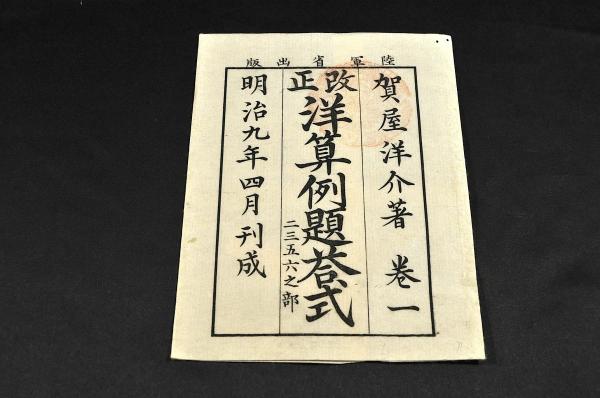 陸軍省出版
賀屋洋介著 巻一
改正
洋算例題荅式
二三五六之部
明治九年四月刊成